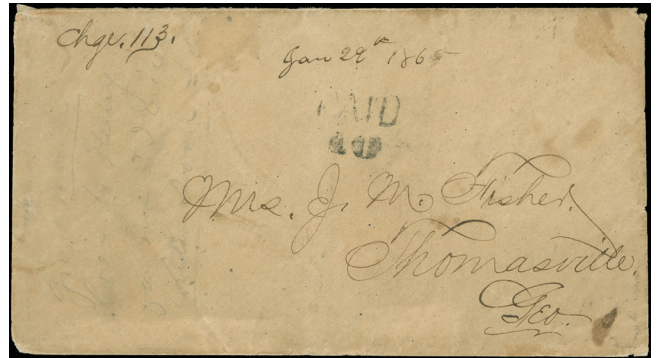 Chge. 113.
Jan 29th 1865
PAID
10
Mrs. J. M. Fisher.
Thomasville.
Geo.